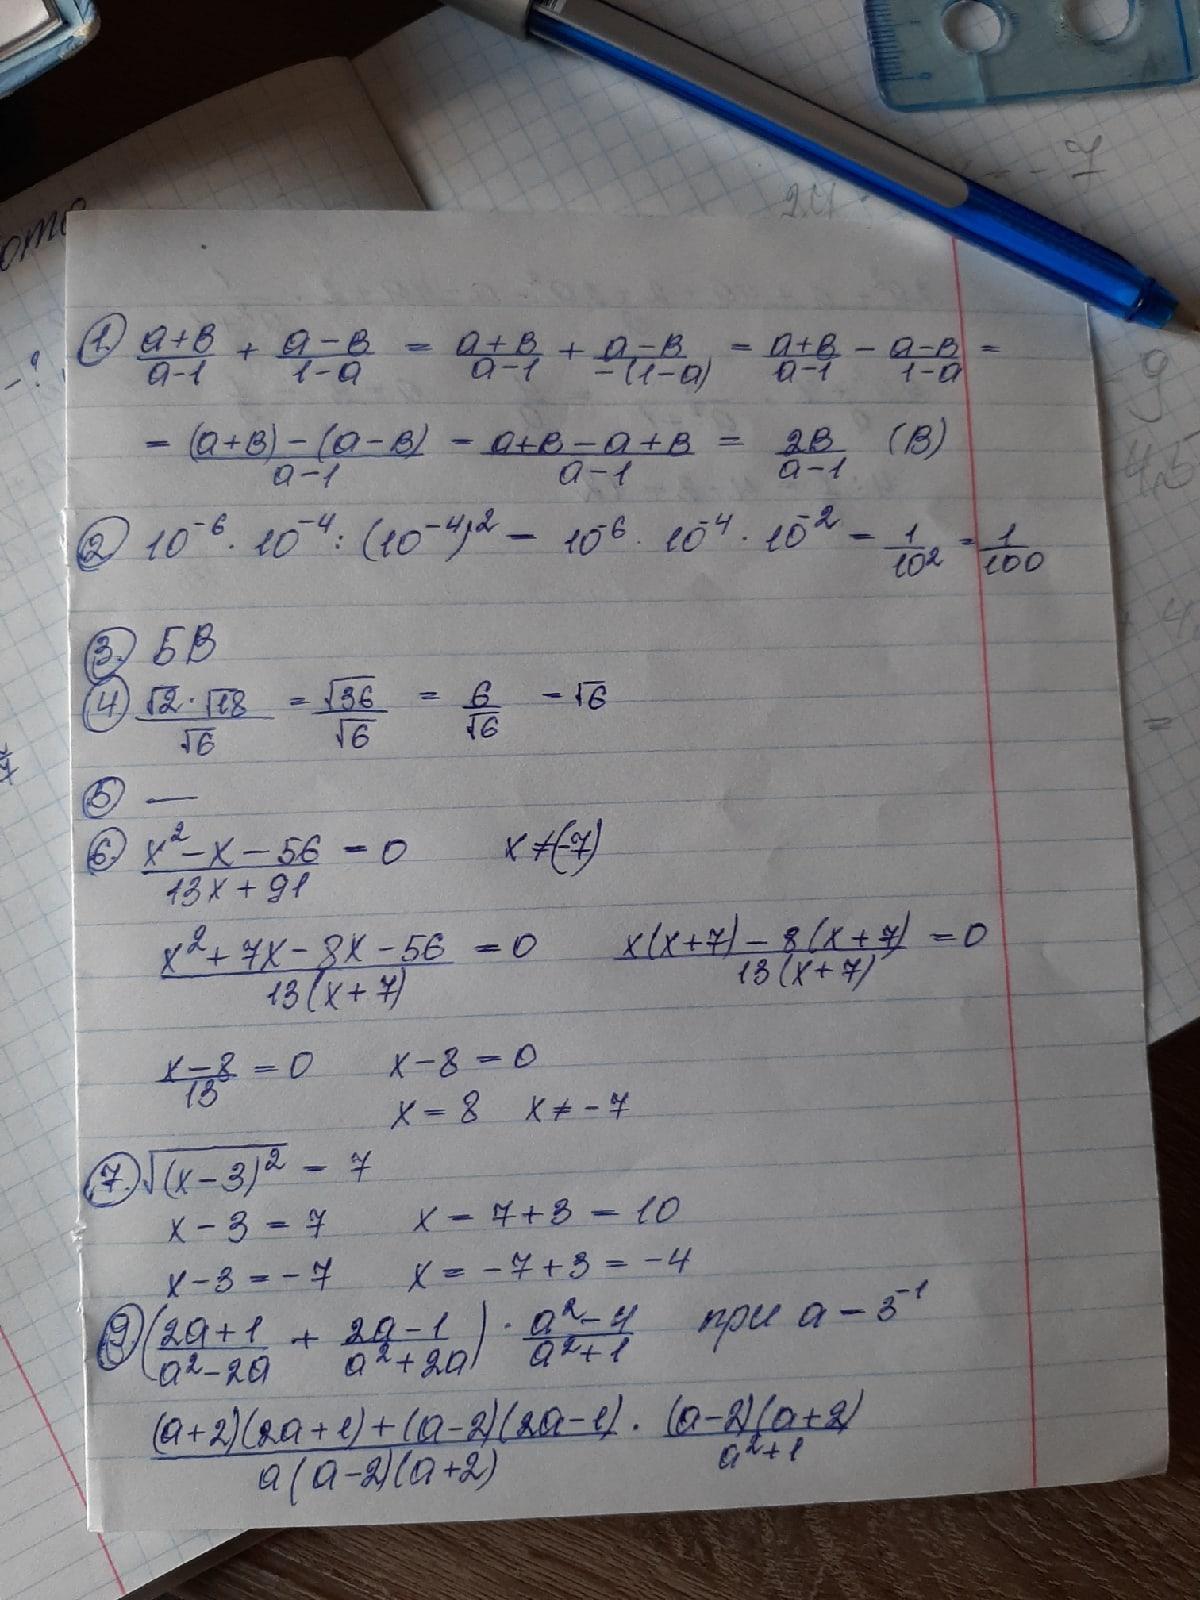 ото
24
- - 7
-?
9
4,5
① (a+в)/(a-1) + (a-в)/(1-a) = (a+в)/(a-1) + (a-в)/(-(1-a)) = (a+в)/(a-1) - (a-в)/(1-a) =
= ((a+в)-(a-в))/(a-1) = (a+в-a+в)/(a-1) = 2в/(a-1) (В)
② 10⁻⁶ · 10⁻⁴ : (10⁻⁴)² = 10⁻⁶ · 10⁻⁴ · 10⁻² = 1/10² = 1/100
③. БВ
④ (√2 · √18)/√6 = √36/√6 = 6/√6 = √6
⑤ —
⑥. (x² - x - 56)/(13x + 91) = 0 x ≠ (-7)
(x² + 7x - 8x - 56)/(13(x+7)) = 0 (x(x+7) - 8(x+7))/(13(x+7)) = 0
(x-8)/13 = 0 x - 8 = 0
x = 8 x ≠ -7
⑦. √((x-3)²) = 7
x - 3 = 7 x = 7+3 = 10
x - 3 = -7 x = -7+3 = -4
⑨. ((2a+1)/(a²-2a) + (2a-1)/(a²+2a)) · (a²-4)/(a²+1) при a = 3⁻¹
((a+2)(2a+1)+(a-2)(2a-1))/(a(a-2)(a+2)) · ((a-2)(a+2))/(a²+1)